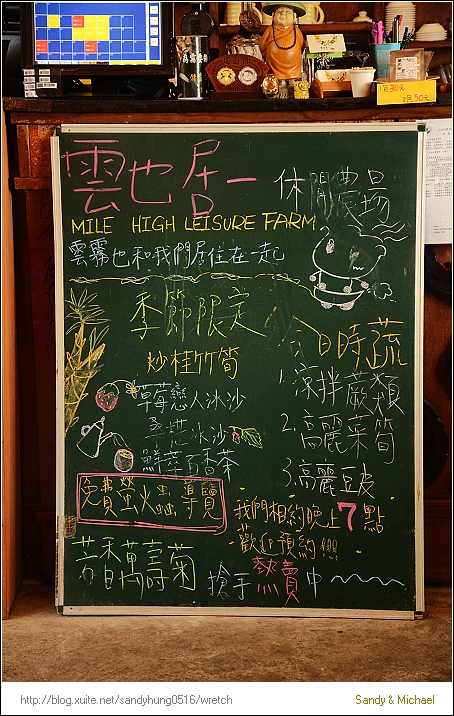 1包30元
2包50元
雲也居一 休閒農場
MILE HIGH LEISURE FARM
雲霧也和我們居住在一起
季節限定
炒桂竹筍
草莓戀人冰沙
桑椹冰沙
鮮萃百香茶
免費螢火蟲導覽
香萬壽菊
今日時蔬
1.涼拌蕨類
2.高麗菜筍
3.高麗豆皮
我們相約晚上7點
歡迎預約!!!
搶手熱賣中
http://blog.xuite.net/sandyhung0516/wretch
Sandy & Michael